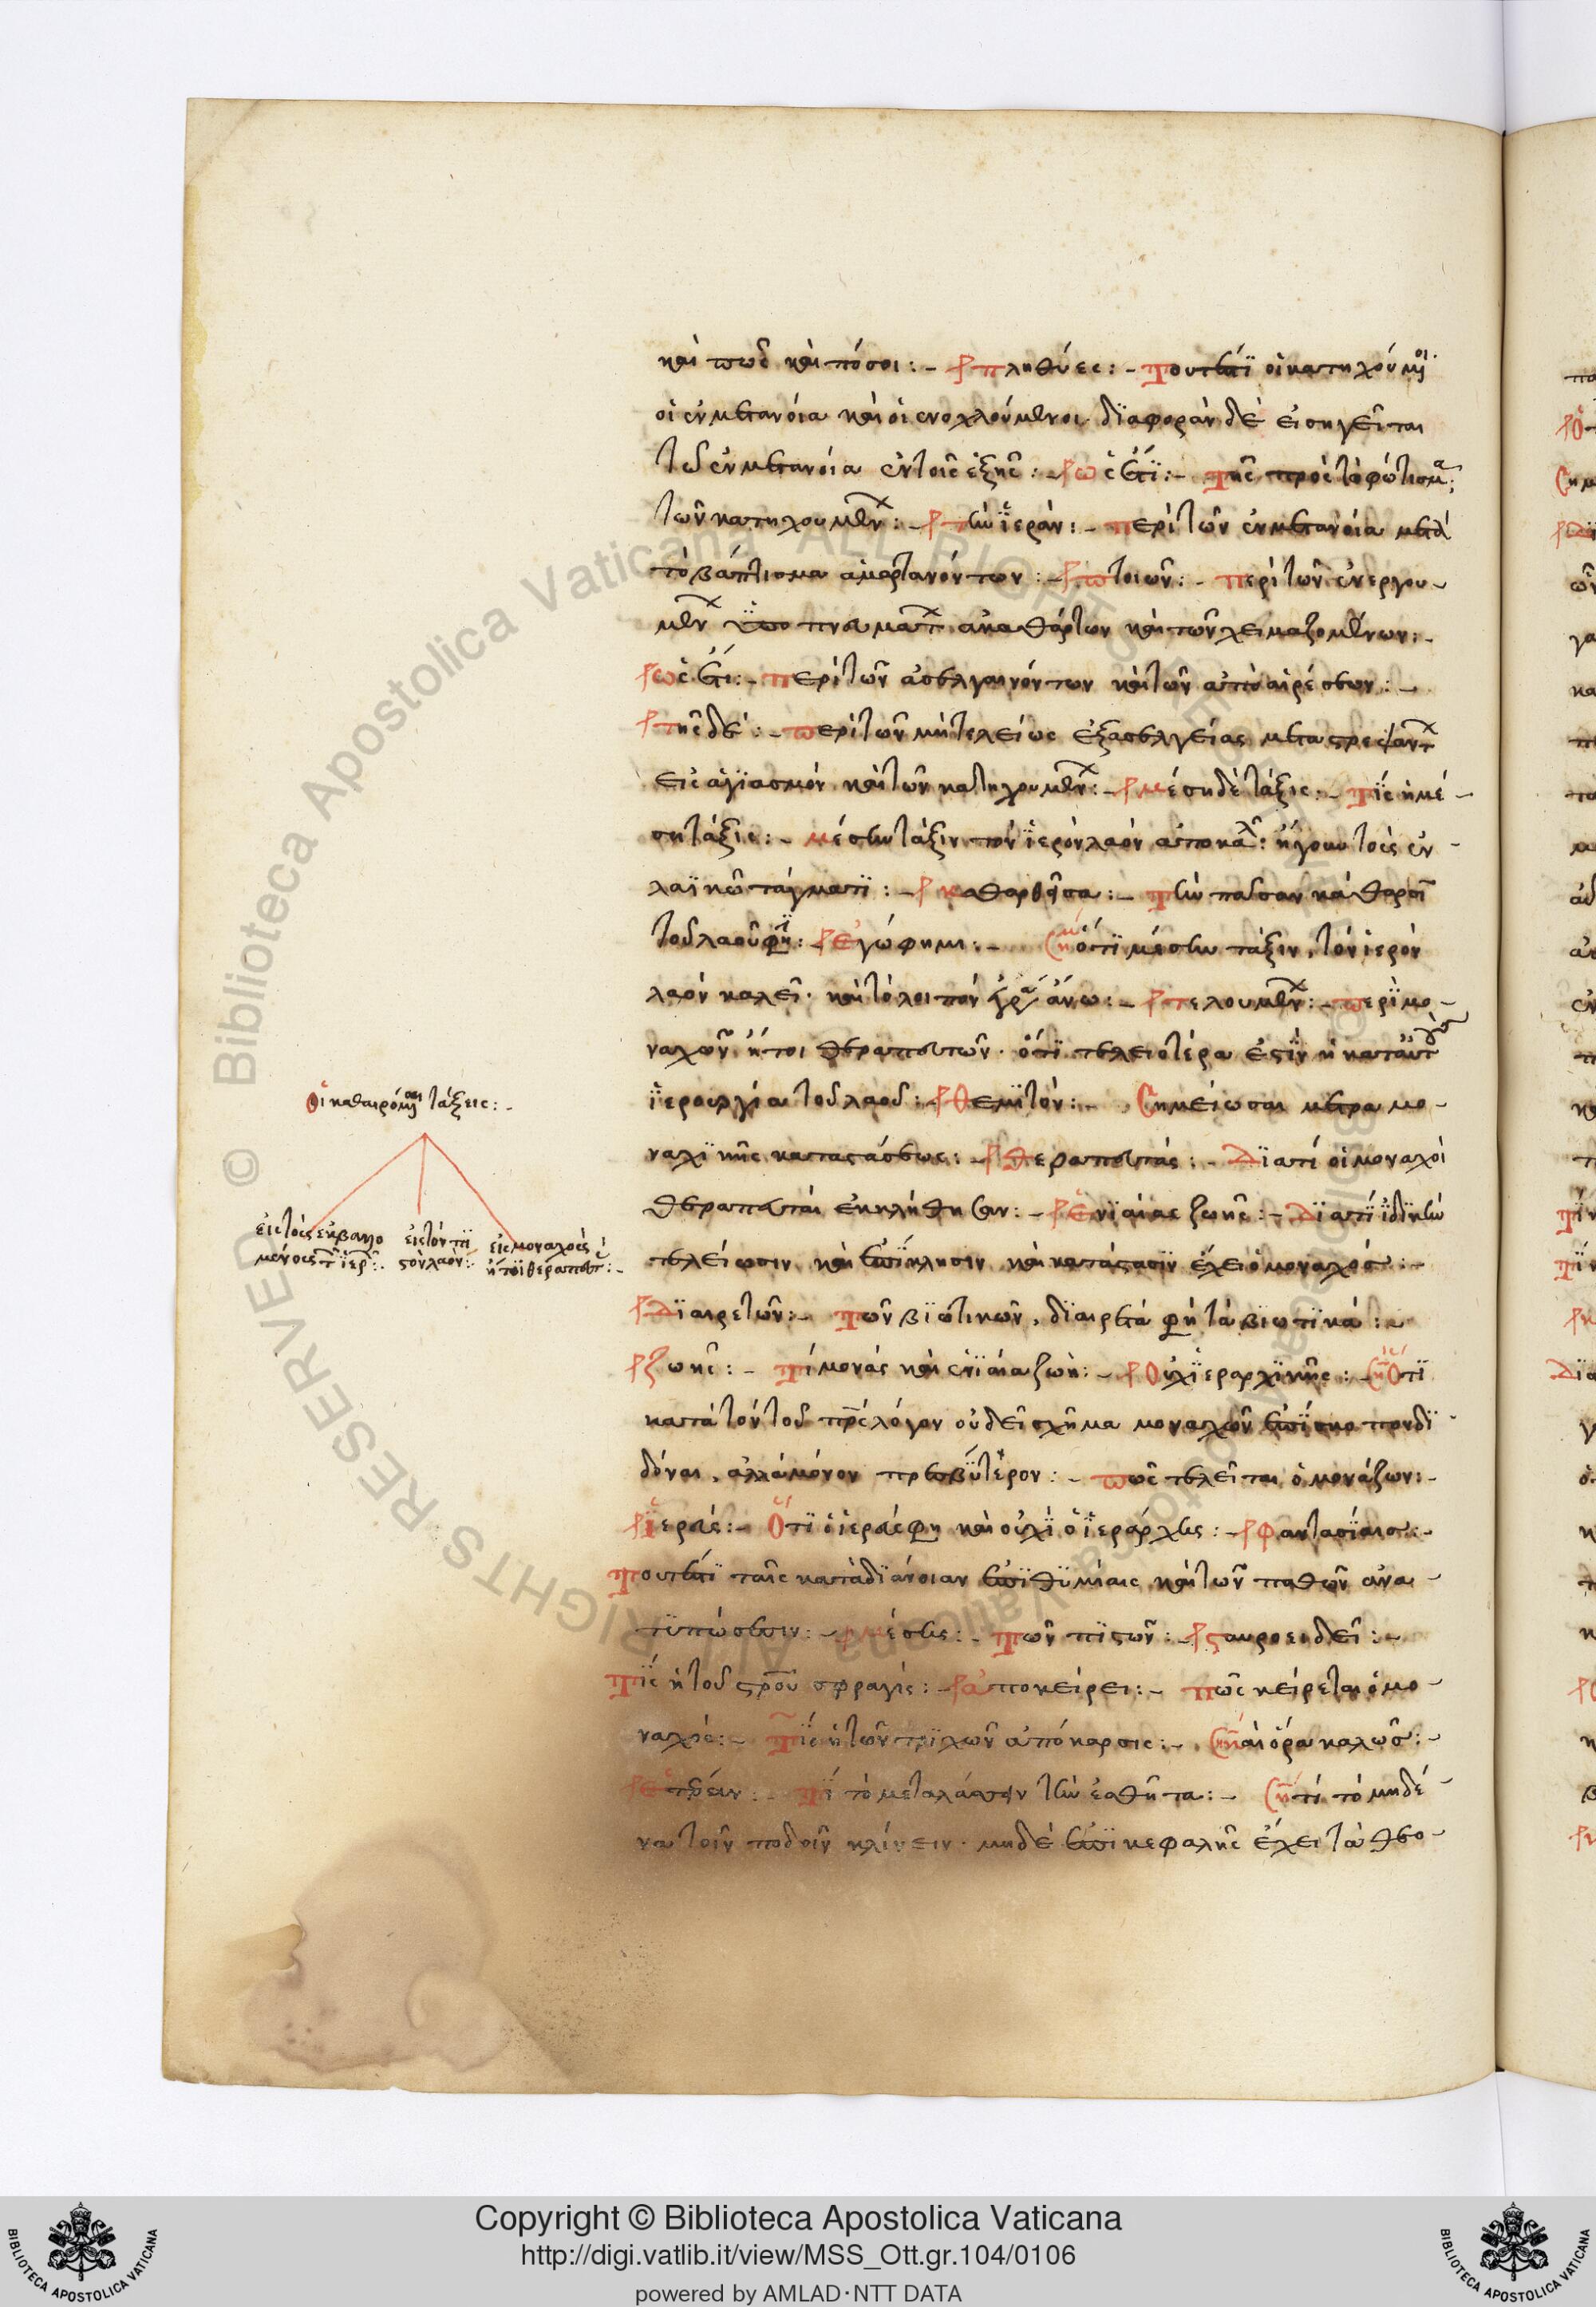 καὶ πῶς καὶ πόσοι :-  πληθύες :- Τουτέστι οἱ κατηχούμενοι
οἱ ἐν μετανοία καὶ οἱ ἐνοχλούμενοι. διαφορὰν δὲ εἰσηγεῖται
τοῦ ἐν μετανοία ἐν τοῖς ἑξῆς :- ὡς ἔτι :- Τῆς πρὸς τὸ φώτισμα
τῶν κατηχουμένων :- τὴν ἱεράν :- περὶ τῶν ἐν μετανοία μετὰ
τὸ βάπτισμα ἁμαρτανόντων :- τοιῶν :- περὶ τῶν ἐνεργου-
μένων ὑπὸ πνευμάτων ἀκαθάρτων καὶ τῶν χειμαζομένων :-
ὡς ἔτι :- περὶ τῶν ἀσελγαινόντων καὶ τῶν ἀπὸ αἱρέσεων :-
τῆς δέ :- περὶ τῶν μὴ τελείως ἐξ ἀσελγείας μεταστρεψάντων
εἰς ἁγιασμὸν καὶ τῶν κατηχουμένων :- μέση δὲ τάξις :- Τίς ἡ μέ-
ση τάξις :- μέσην τάξιν τὸν ἱερὸν λαὸν ἀποκαλεῖ : ἤγουν τοὺς ἐν
λαϊκῷ τάγματι :- καθαρθεῖσα :- Τὴν πᾶσαν κάθαρσιν
τοῦ λαοῦ φησι :- ἐγώ φημι :- ση ὅτι μέσην τάξιν, τὸν ἱερὸν
λαὸν καλεῖ. καὶ τὸ λοιπὸν ἄνω :- τελουμένων :- περὶ μο-
ναχῶν ἤτοι θεραπευτῶν. ὅτι τελειοτέρα ἐστὶν ἡ κατ' αὐτοὺς
ἱερουργία τοῦ λαοῦ :- θεμιτόν :- Σημείωσαι μέτρα μο-
ναχικῆς καταστάσεως :- θεραπευτάς :- Διατί οἱ μοναχοὶ
θεραπευταὶ ἐκλήθησαν :- ἑνιαίας ζωῆς :- Διατί ἰδικὴν
τελείωσιν καὶ ἐπίκλησιν καὶ κατάστασιν ἔχει ὁ μοναχός :-
Διαιρετῶν :- Τῶν βιωτικῶν, διαιρετὰ φησὶ τὰ βιωτικά :-
ζωῆς :- Τί μονὰς καὶ ἑνιαία ζωή :- Οὐχ ἱεραρχικῆς :- ση Ὅτι
κατὰ τὸν τοῦ πατρὸς λόγον οὐ δεῖ σχῆμα μοναχῶν ἐπίσκοπον δι
δόναι, ἀλλὰ μόνον πρεσβύτερον :- πῶς τελεῖται ὁ μονάζων :-
ἱερεύς :- Ὅτι ὁ ἱερεύς φησι καὶ οὐχὶ ὁ ἱεράρχης :- φαντασίαις :-
Τουτέστι ταῖς κατὰ διάνοιαν ἐπιθυμίαις καὶ τῶν παθῶν ἀνα-
τυπώσεσιν :- μέσης :- Τῶν πιστῶν :- σταυροειδεῖ :-
Τίς ἡ τοῦ σταυροῦ σφραγίς :- ἀποκείρει :- πῶς κείρεται ὁ μο-
ναχός :- Τίς ἡ τῶν τριχῶν ἀπόκαρσις :- σημείωσαι ὅρα καλῶς :-
Τί τὸ μεταλλάττειν τὴν ἐσθῆτα :- ση τί τὸ μηδέ
να τοῖν ποδοῖν κλίνειν. μηδὲ ἐπὶ κεφαλῆς ἔχει τὰ θεο-
Οἱ καθαιρόμεναι τάξεις :-
εἰς τοὺς ἐκβαλλο
μένους τῶν ἱερῶν :-
εἰς τὸν πι
στὸν λαόν :-
εἰς μοναχοὺς
ἤτοι θεραπευτάς :-
© Biblioteca Apostolica Vaticana ALL RIGHTS RESERVED
Copyright © Biblioteca Apostolica Vaticana
http://digi.vatlib.it/view/MSS_Ott.gr.104/0106
powered by AMLAD·NTT DATA
BIBLIOTECA APOSTOLICA VATICANA
BIBLIOTECA APOSTOLICA VATICANA